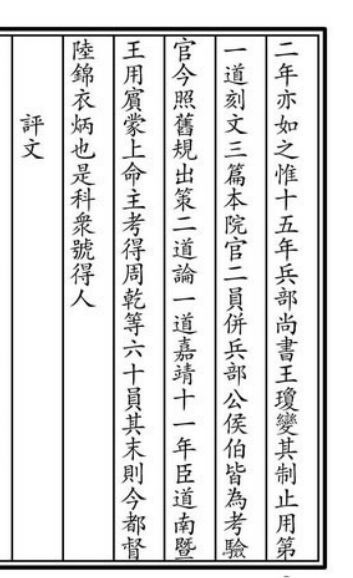 二年亦如之惟十五年兵部尚書王瓊變其制止用第
一道刻文三篇本院官二員併兵部公侯伯皆為考驗
官今照舊規出策二道論一道嘉靖十一年臣道南暨
王用賓蒙上命主考得周乾等六十員其末則今都督
陸錦衣炳也是科衆號得人
評文